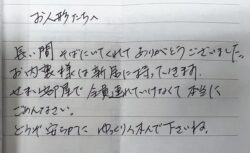 お人形たちへ
長い間 そばにいてくれて ありがとうございました。
お内裏様は新居に持って行きます。
せまい部屋で 全員連れていけなくて 本当に
ごめんなさい。
どうぞ安らかに ゆっくり休んで下さいね。